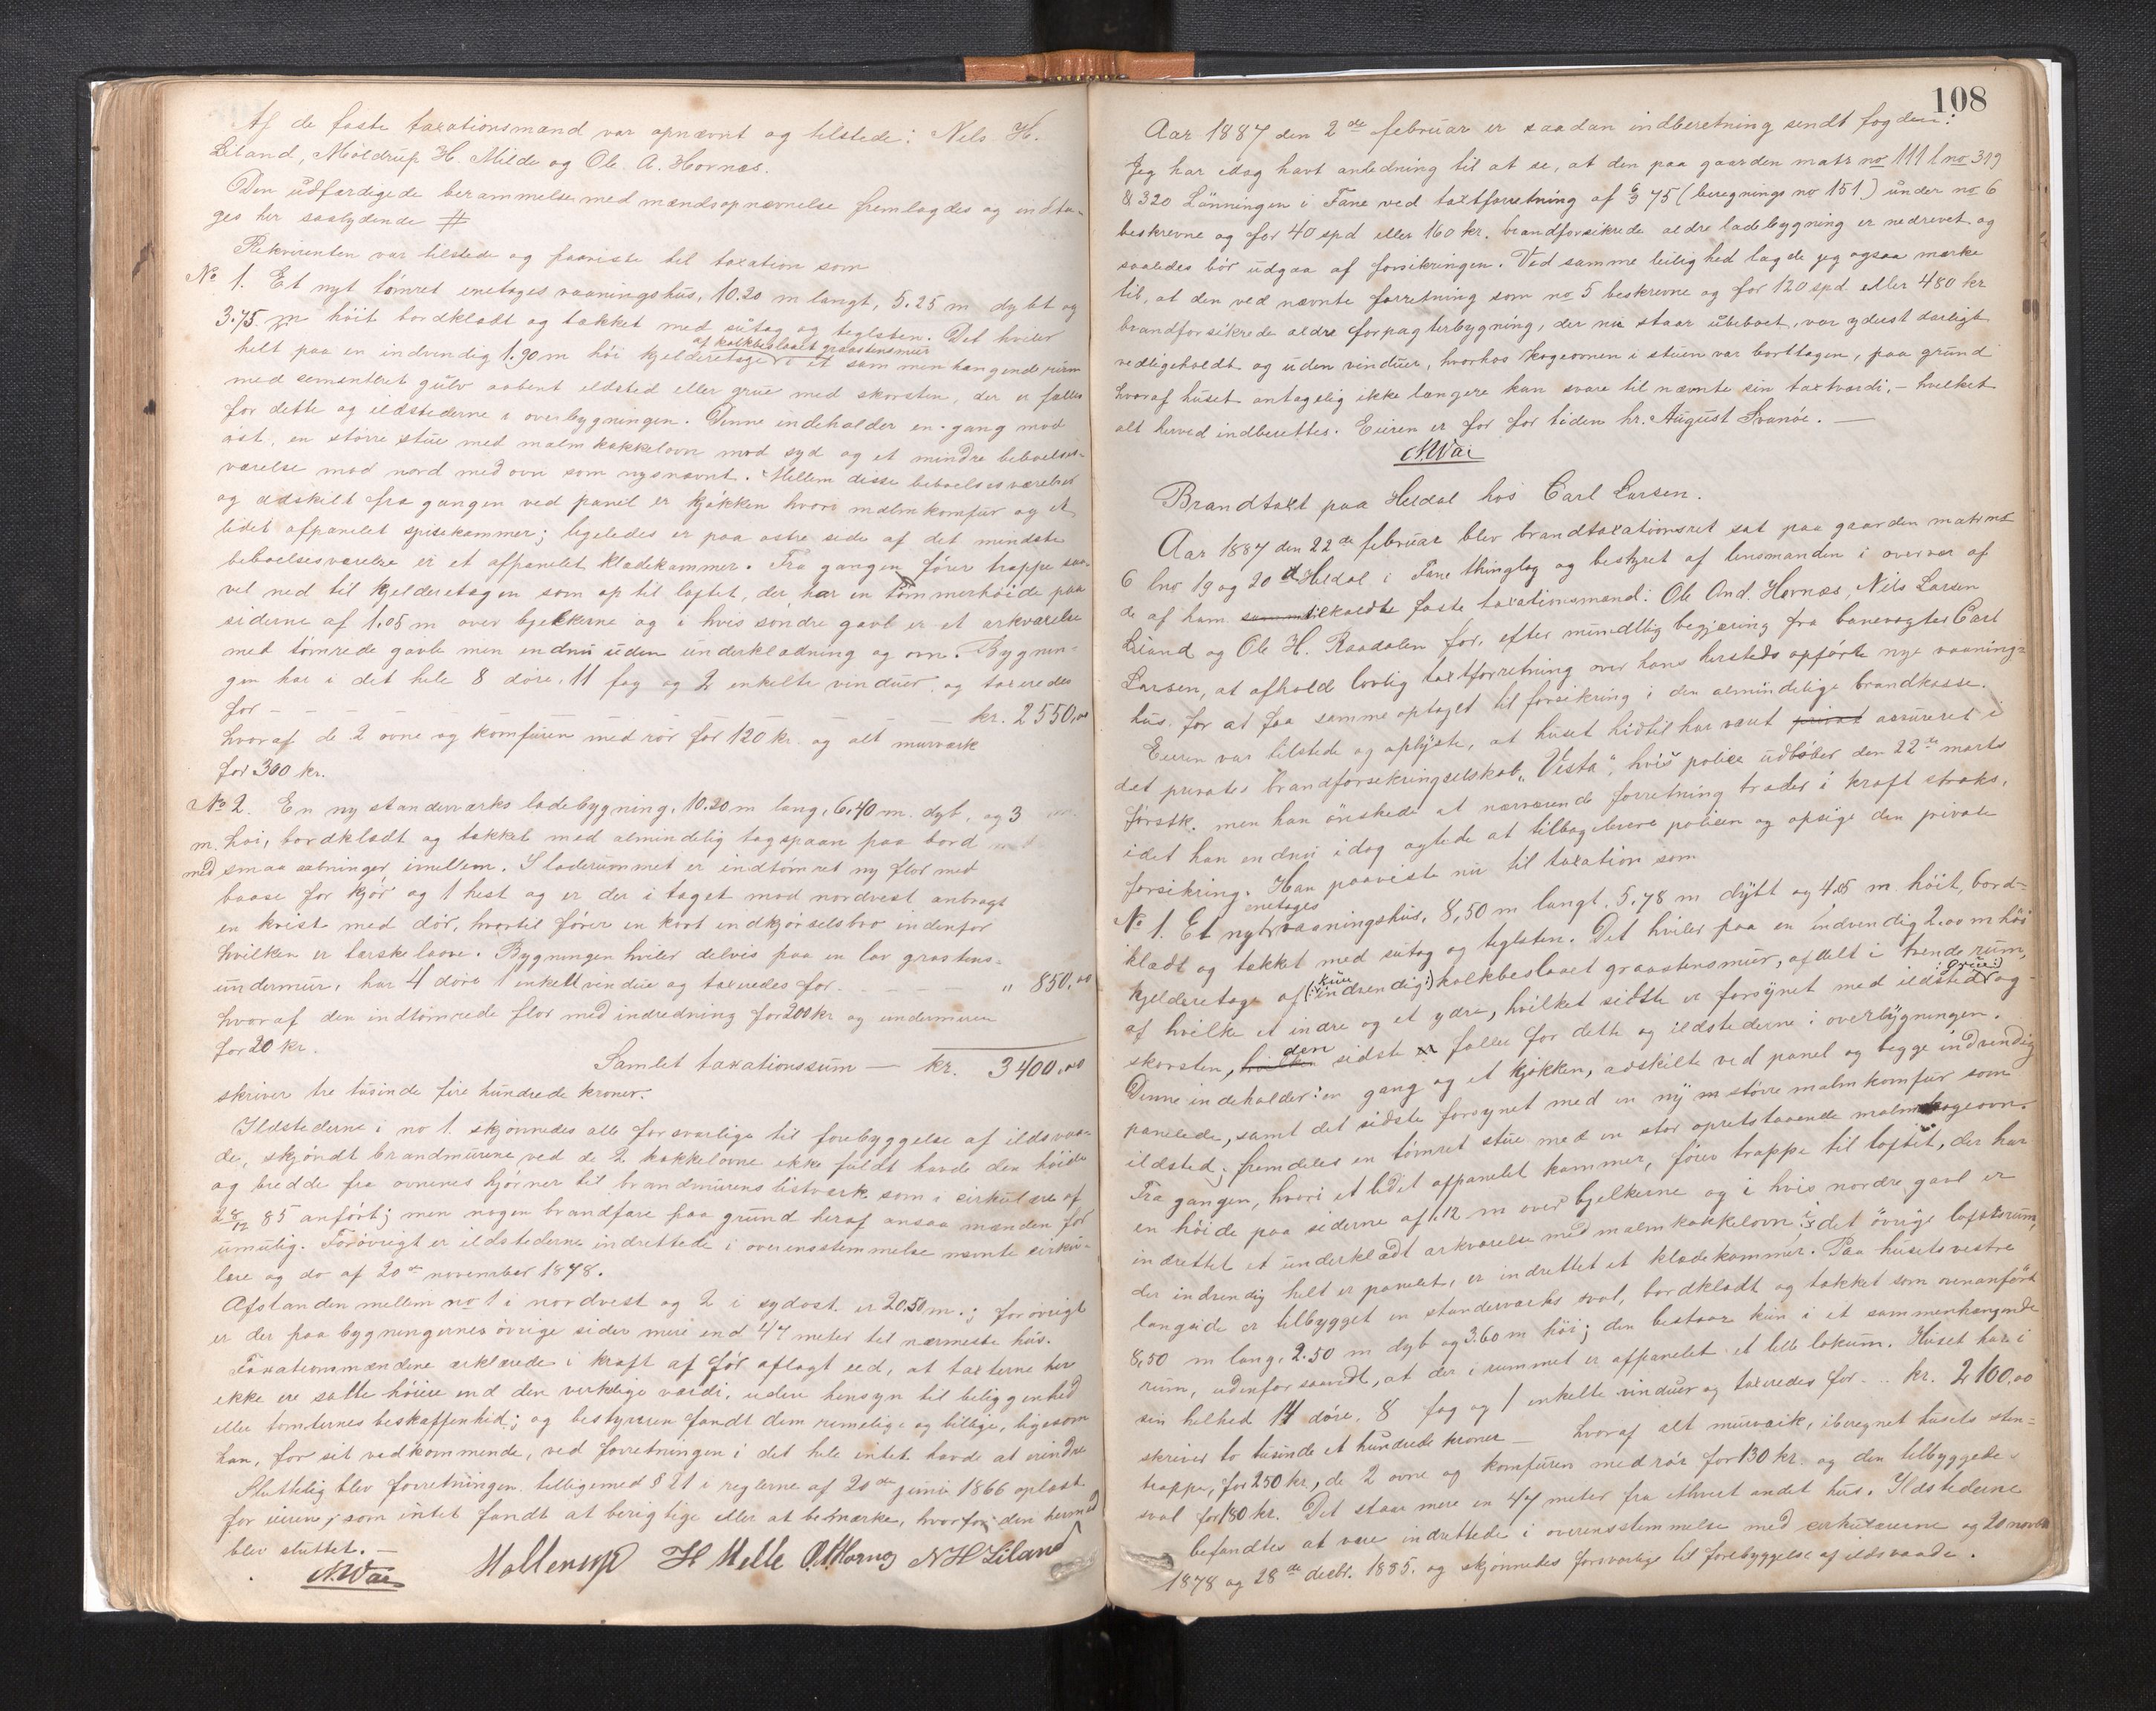 Af de faste taxationsmænd var opnævnt og tilstede: Nils H.
Liland, Møldrup H. Milde og Ole A. Hornæs.
Den udfærdigede berammelse med mandsopnævnelse fremlagdes og indta-
ges her saalydende #
Rekvirenten var tilstede og paaviste til taxation som
No 1. Et nyt tømret enetages vaaningshus, 10.20 m langt, 5.25 m dybt og
3.75 m høit bordklædt og tækket med sutag og teglsten. Det hviler
af kalkbeslaaet graastensmur
helt paa en indvendig 1.90 m høi kjelderetage i et sammenhængende rum
med sementeret gulv aabent ildsted eller grue med skorsten, der er fælles
for dette og ildstederne i overbygningen. Denne indeholder en gang mod
øst, en større stue med malmkakkelovn mod syd og et mindre beboelses-
værelse mod nord med ovn som nysnævnt. Mellem disse beboelsesværelser
og adskilt fra gangen ved panel er kjøkken hvori malmkomfur og et
lidet afpanelet spisekammer; ligeledes er paa østre side af det mindste
beboelsesværelse er et afpanelet klædekammer. Fra gangen fører trappe saa-
vel ned til kjelderetagen som op til loftet, der har en tømmerhøide paa
siderne af 1.05 m over bjelkerne og i hvis søndre gavl er et arkværelse
med tømrede gavle men endnu uden underklædning og ovn. Bygnin-
gen har i det hele 8 døre, 11 fag og 2 enkelte vinduer og taxeredes
for - - - - - - - - kr. 2550,00
hvoraf de 2 ovne og komfuren med rør for 120 kr. og alt murværk
for 300 kr.
No 2. En ny standerværks ladebygning, 10.20 m lang, 6,40 m. dyb, og 3
m. høi, bordklædt og tækket med almindelig tagspaan paa bord
med smaa aabninger imellem. I laderummet er indtømret ny flor med
baase for kjør og 1 hest og er der i taget mod nordvest anbragt
en kvist med dør, hvortil fører en kort indkjørselsbro indenfor
hvilken er tærskelaave. Bygningen hviler delvis paa en lav graastens-
undermur, har 4 døre 1 enkelt vindue og taxeredes for - - - - - " 850,00
hvoraf den indtømrede flor med indredning for 200 kr og undermuren
for 20 kr.
Samlet taxationssum — kr. 3400,00
skriver tre tusinde fire hundrede kroner.
Ildstederne i no 1. skjønnedes alle forsvarlige til forebyggelse af ildsvaa-
de, skjøndt brandmurene ved de 2 kakkelovne ikke fuldt havde den høide
og bredde fra ovnenes hjørner til brandmurens listværk som i cirkulære af
28/12 85 anført; men nogen brandfare paa grund heraf ansaa mændene for
umulig. Forøvrigt er ildstederne indrettede i overensstemmelse nævnte cirku-
lære og do af 20de november 1878.
Afstanden mellem no 1 i nordvest og 2 i sydøst er 20.50 m.; forøvrigt
er der paa bygningernes øvrige sider mere end 47 meter til nærmeste hus.
Taxationsmændene erklærede i kraft af før aflagt eed, at taxterne her
ikke ere satte høiere end den virkelige værdi, uden hensyn til beliggenhed
eller tomternes beskaffenhed; og bestyreren fandt dem rimelige og billige, ligesom
han, for sit vedkommende, ved forretningen i det hele intet havde at erindre
Sluttelig blev forretningen tilligemed § 21 i reglerne af 20de juni 1866 oplæst
for eieren, som intet fandt at berigtige eller at bemærke, hvorfor den hermed
blev sluttet. —
Mollerup H Milde O. A Hornæs N H Liland
108
Aar 1887 den 2de februar er saadan indberetning sendt fogden:
Jeg har idag havt anledning til at se, at den paa gaarden matr no 111 l no 319
& 320 Lønningen i Fane ved taxtforretning af 6/3 75 (beregnings no 151) under no 6
beskrevne og for 40 spd eller 160 kr. brandforsikrede ældre ladebygning er nedrevet og
saaledes bør udgaa af forsikringen. Ved samme leilighed lagde jeg ogsaa mærke
til, at den ved nævnte forretning som no 5 beskrevne og for 120 spd eller 480 kr
brandforsikrede ældre forpagterbygning, der nu staar ubeboet, var yderst daarligt
vedligeholdt og uden vinduer, hvorhos kogeovnen i stuen var borttagen, paa grund
hvoraf huset antagelig ikke længere kan svare til nævnte sin taxtværdi, - hvilket
alt herved indberettes. Eieren er for for tiden hr. August Svanøe. —
Brandtaxt paa Heldal hos Carl Larsen.
Aar 1887 den 22de februar blev brandtaxationsret sat paa gaarden matr no
6 lno 19 og 20 Heldal i Fane thinglag og bestyret af lensmanden i overvær af
de af ham tilkaldte faste taxationsmænd: Ole And. Hornæs, Nils Larsen
Liland og Ole H. Raadalen for, efter mundtlig begjæring fra banevogter Carl
Larsen, at afholde lovlig taxtforretning over hans hersteds opførte nye vaanings-
hus for at faa samme optaget til forsikring i den almindelige brandkasse.
Eieren var tilstede og oplyste, at huset hidtil har været privat assureret i
det private brandforsikringselskab „Vesta", hvis police udløber den 22de marts
førstk. men han ønskede at nærværende forretning træder i kraft straks,
idet han endnu idag agtede at tilbagelevere policen og opsige den private
forsikring. Han paaviste nu til taxation som
enetages
No 1. Et nyt vaaningshus, 8,50 m langt, 5,78 m dybt og 4.05 m. høit, bord-
klædt og tækket med sutag og teglsten. Det hviler paa en indvendig 2.00 m høi
kjelderetage af (: kun indvendig :) kalkbeslaaet graastensmur, afdelt i tvende rum,
af hvilke et indre og et ydre, hvilket sidste er forsynet med ildsted (: grue :) og
skorsten, den sidste fælles for dette og ildstederne i overbygningen.
Denne indeholder: en gang og et kjøkken, adskilte ved panel og begge indvendig
panelede, samt det sidste forsynet med en ny større malmkomfur som
ildsted; fremdeles en tømret stue med en stor opretstaaende malmkogeovn.
Fra gangen, hvori et lidet afpanelet kammer, fører trappe til loftet, der har
en høide paa siderne af 1.12 m over bjelkerne og i hvis nordre gavl er
indrettet et underklædt arkværelse med malmkakkelovn; i det øvrige loftsrum,
der indvendig helt er panelet, er indrettet et klædekammer. Paa husets vestre
langside er tilbygget en standerværks sval, bordklædt og tækket som ovenanført
8,50 m lang, 2.50 m dyb og 3.60 m høi; den bestaar kun i et sammenhængende
rum, udenfor saavidt, at der i rummet er afpanelet et lille lokum. Huset har i
sin helhed 14 døre, 8 fag og 1 enkelte vinduer og taxeredes for - . . kr. 2100.00
skriver to tusinde et hundrede kroner — hvoraf alt murværk, iberegnet husets sten-
trappe, for 250 kr, de 2 ovne og komfuren med rør for 130 kr. og den tilbyggede
sval for 180 kr. Det staar mere en 47 meter fra ethvert andet hus. Ildstederne
befandtes at være indrettede i overensstemmelse med cirkulærerne og 20 novbr
1878 og 28de decbr. 1885. og skjønnedes forsvarlige til forebyggelse af ildsvaade.